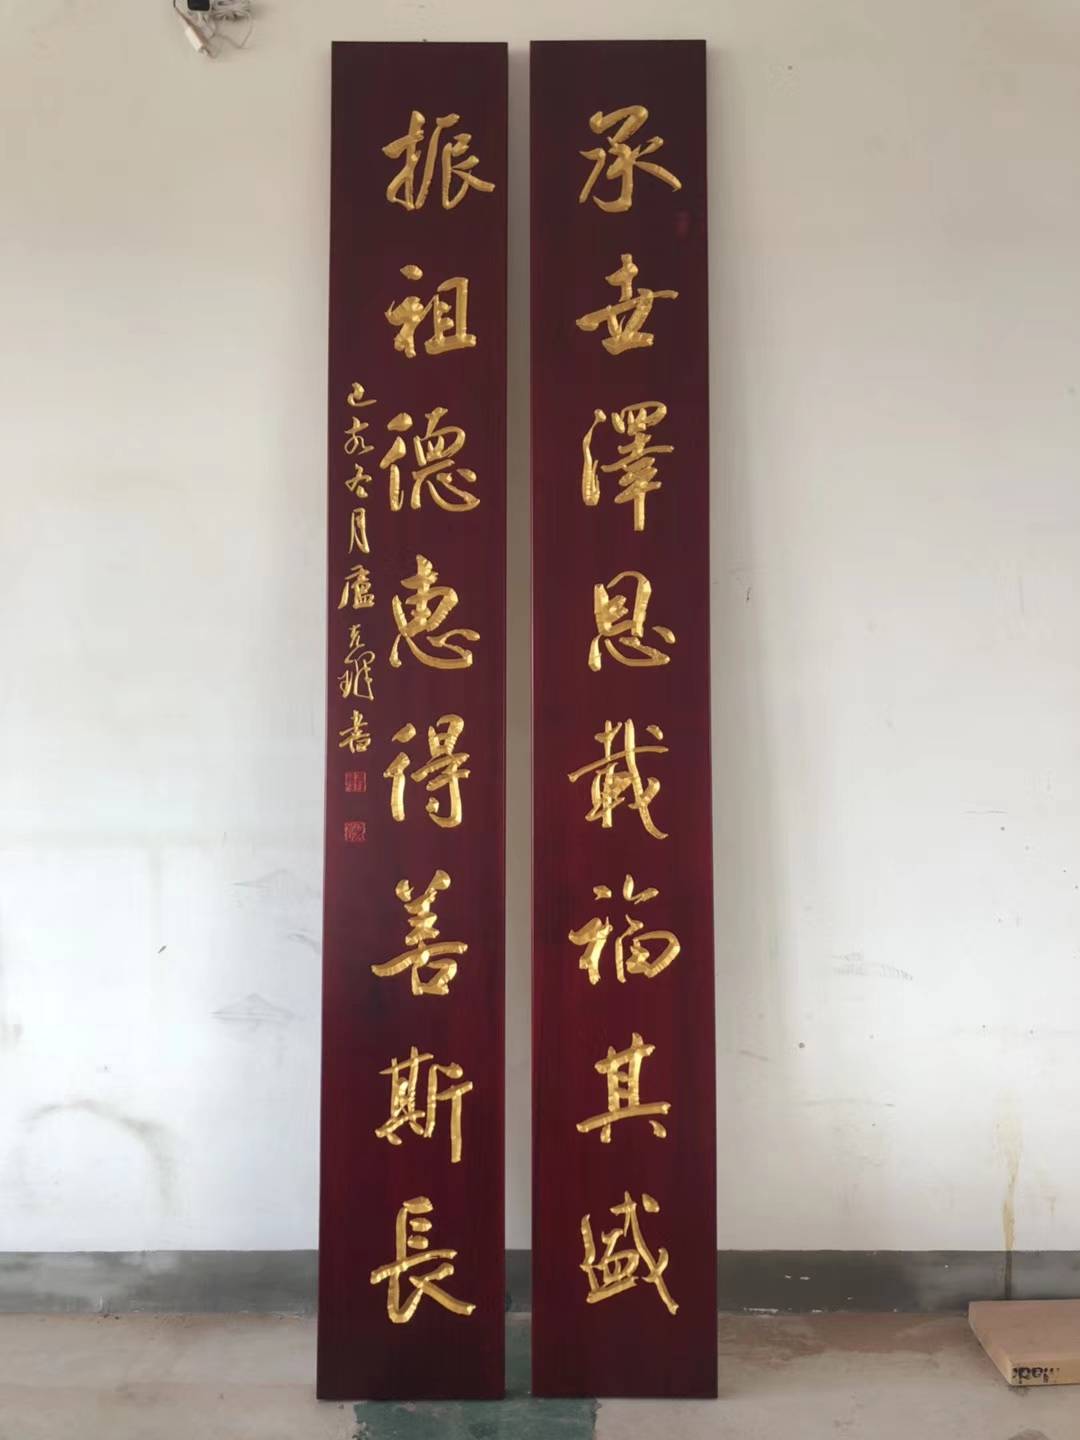 承世澤恩載福其盛
振祖德惠得善斯長
己亥冬月盧克輝書